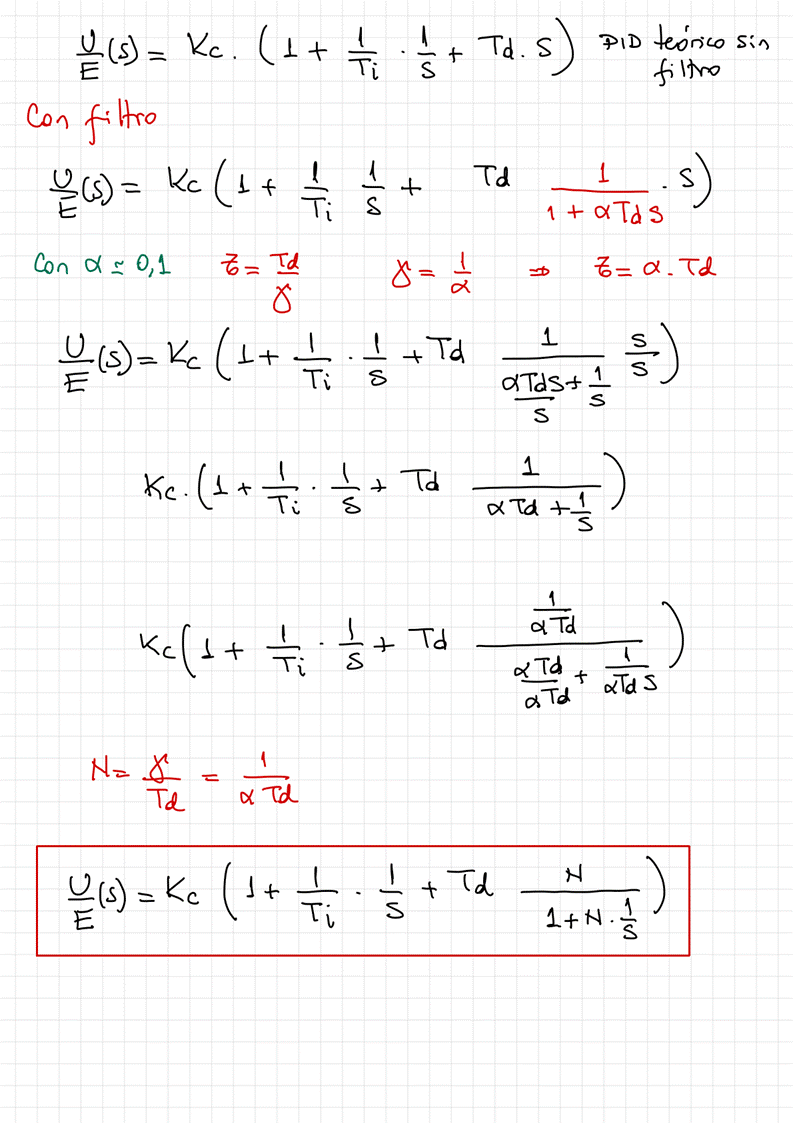 U/E (s) = Kc . (1 + 1/Ti . 1/s + Td . s) PID teórico sin filtro
Con filtro
U/E (s) = Kc (1 + 1/Ti 1/s + Td 1/(1 + αTd s) . s)
Con α ≃ 0,1 τ = Td/γ γ = 1/α ⇒ τ = α . Td
U/E (s) = Kc (1 + 1/Ti . 1/s + Td 1/(αTds/s + 1/s) s/s)
Kc . (1 + 1/Ti . 1/s + Td 1/(αTd + 1/s))
Kc (1 + 1/Ti . 1/s + Td (1/(αTd))/(αTd/(αTd) + 1/(αTd s)))
N = γ/Td = 1/(αTd)
U/E (s) = Kc (1 + 1/Ti . 1/s + Td N/(1 + N . 1/s))